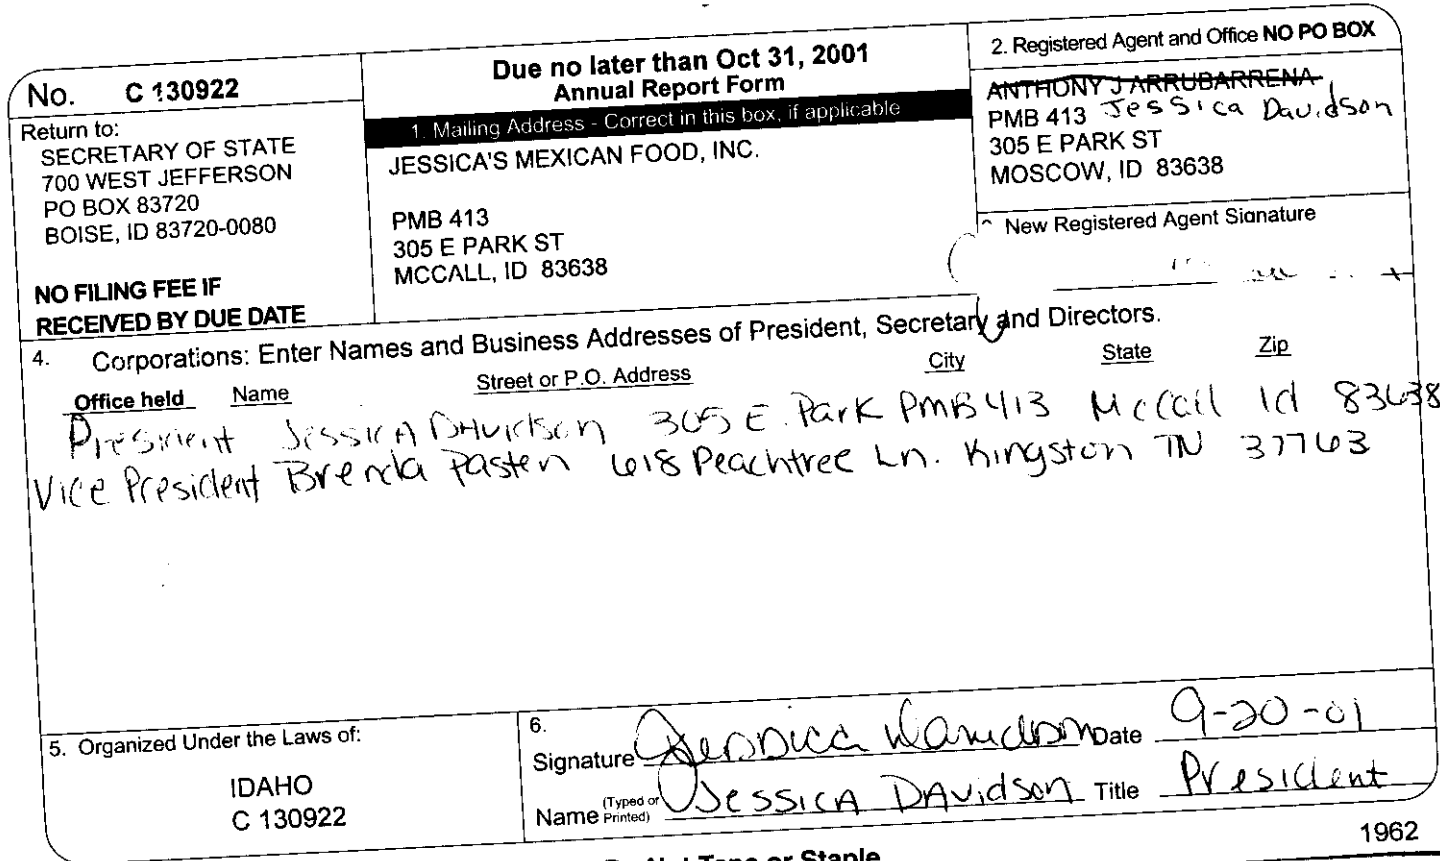 No. C 130922
Return to:
SECRETARY OF STATE
700 WEST JEFFERSON
PO BOX 83720
BOISE, ID 83720-0080
NO FILING FEE IF
RECEIVED BY DUE DATE
Due no later than Oct 31, 2001
Annual Report Form
1. Mailing Address - Correct in this box, if applicable
JESSICA'S MEXICAN FOOD, INC.
PMB 413
305 E PARK ST
MCCALL, ID 83638
2. Registered Agent and Office NO PO BOX
ANTHONY J ARRUBARRENA
PMB 413 Jessica Davidson
305 E PARK ST
MOSCOW, ID 83638
New Registered Agent Signature
4. Corporations: Enter Names and Business Addresses of President, Secretary and Directors.
Office held Name Street or P.O. Address City State Zip
President Jessica Davidson 305 E. Park PMB 413 McCall Id 83638
Vice President Brenda Pasten 618 Peachtree Ln. Kingston TN 37763
5. Organized Under the Laws of:
IDAHO
C 130922
6.
Signature Jessica Davidson Date 9-20-01
Name (Typed or Printed) Jessica Davidson Title President
1962
Tape or Staple